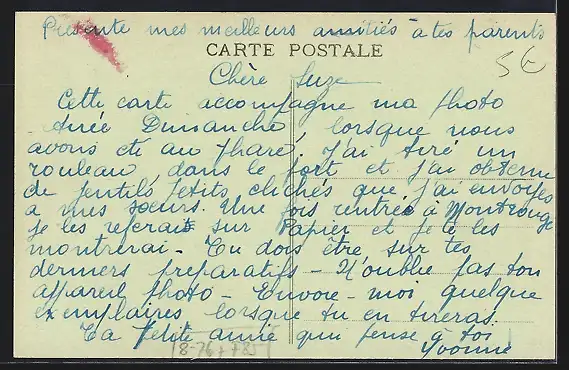 Présente mes meilleurs amitiés à tes parents
CARTE POSTALE
5€
Chère Suze
Cette carte accompagne ma photo
tirée Dimanche, lorsque nous
avons été au phare, j'ai tiré un
rouleau, dans le fort et j'ai obtenu
de gentils petits clichés que j'ai envoyés
à mes sœurs. Une fois rentrée à Montrouge
je les referais sur Papier et je te les
montrerai - Tu dois être sur tes
derniers préparatifs - N'oublie pas ton
appareil photo - Envoie-moi quelque
exemplaires lorsque tu en tireras.
Ta petite amie qui pense à toi
Yvonne